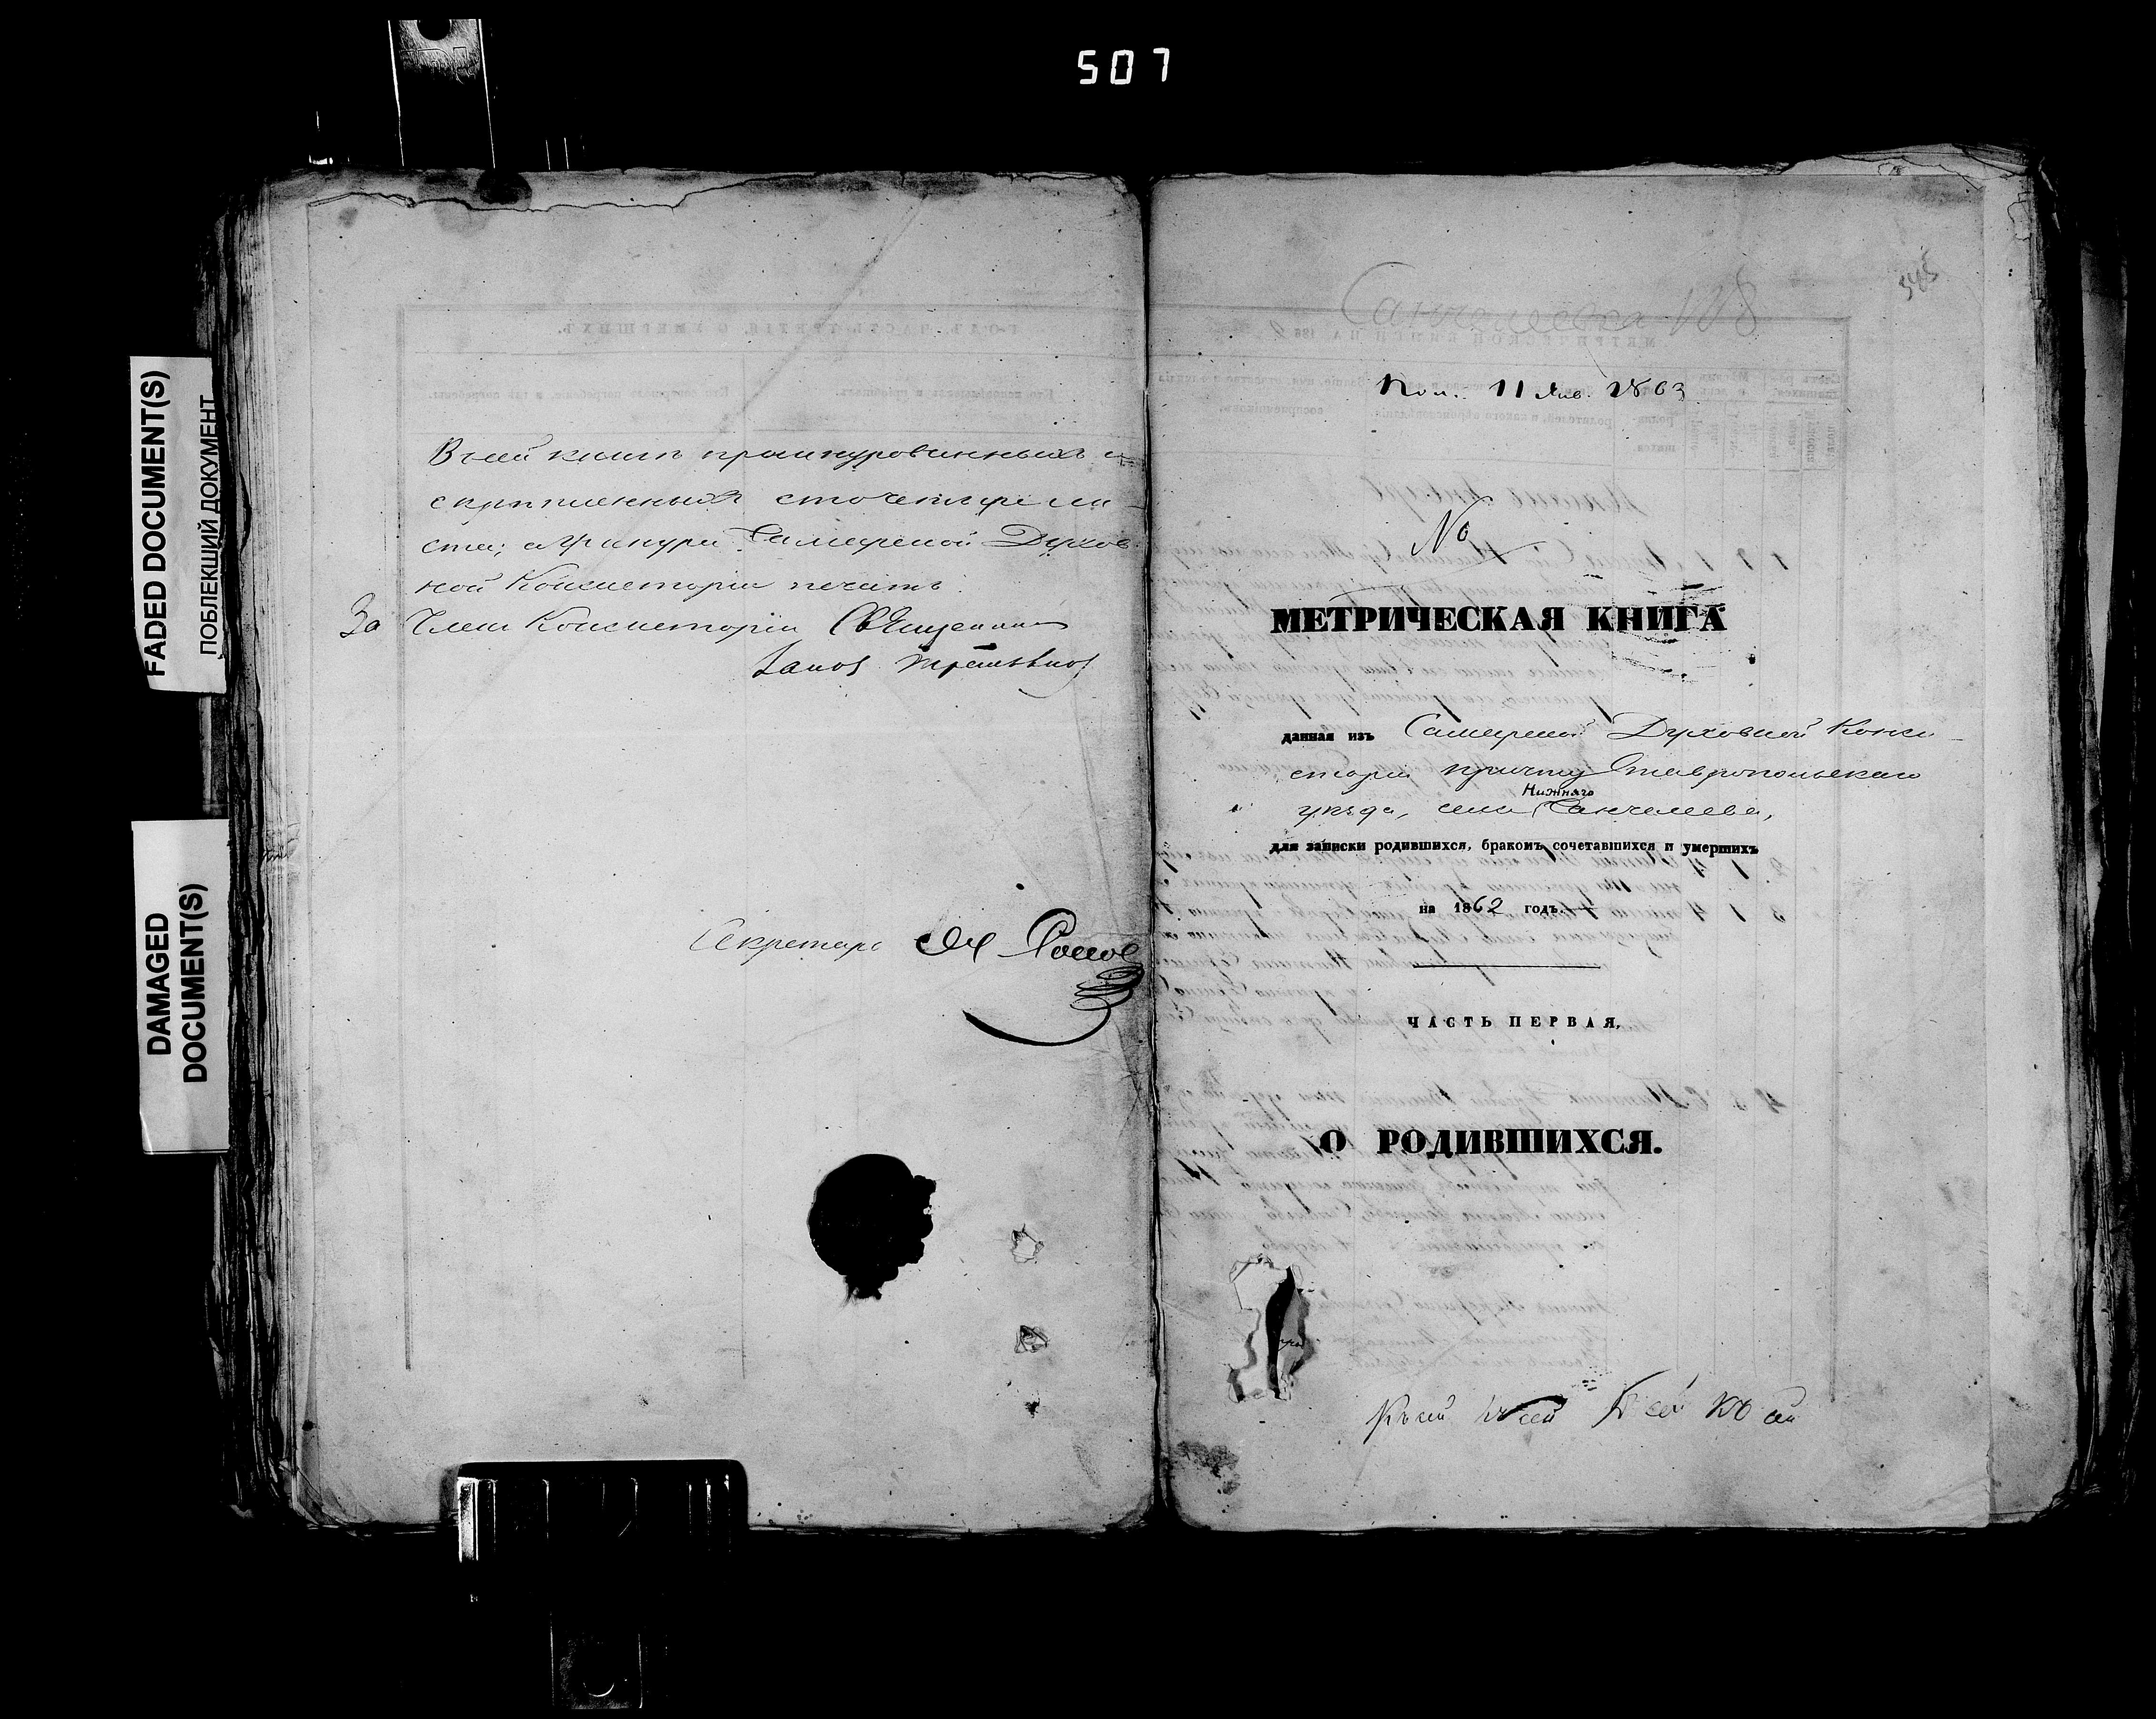 507
FADED DOCUMENT(S)
ПОБЛЕКШИЙ ДОКУМЕНТ
DAMAGED
DOCUMENT(S)
В сей книгѣ прошнурованныхъ и
скрѣпленныхъ сто четыре ли-
ста; а у шнура Самарской Духов
ной Консисторіи печать.
За Члена Консисторіи Священникъ
Іаковъ
Секретарь М. Поповъ
545
Санчелеевка 108
Пол. 11 Янв. 1863
№
МЕТРИЧЕСКАЯ КНИГА
данная изъ Самарской Духовной Конси-
сторіи причту Ставропольскаго
Нижняго
уѣзда, села Санчелеева,
для записки родившихся, бракомъ сочетавшихся и умершихъ
на 1862 годъ.
ЧАСТЬ ПЕРВАЯ,
О РОДИВШИХСЯ.
Къ сей Къ сей Къ сей Къ сей